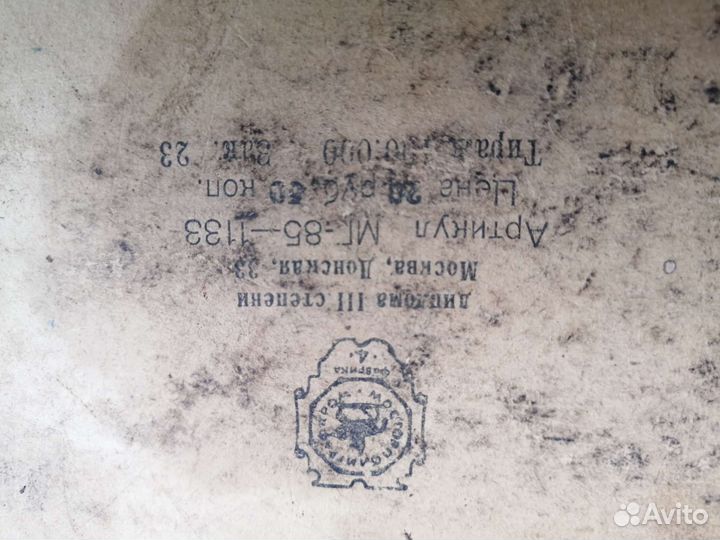 МОСГОРПОЛИГРАФПРОМ
ФАБРИКА
4
диплома III степени
Москва, Донская, 33
Артикул МГ-85—1133
Цена 20 руб. 50 коп.
Тираж 00.000 Зак. 23
Avito